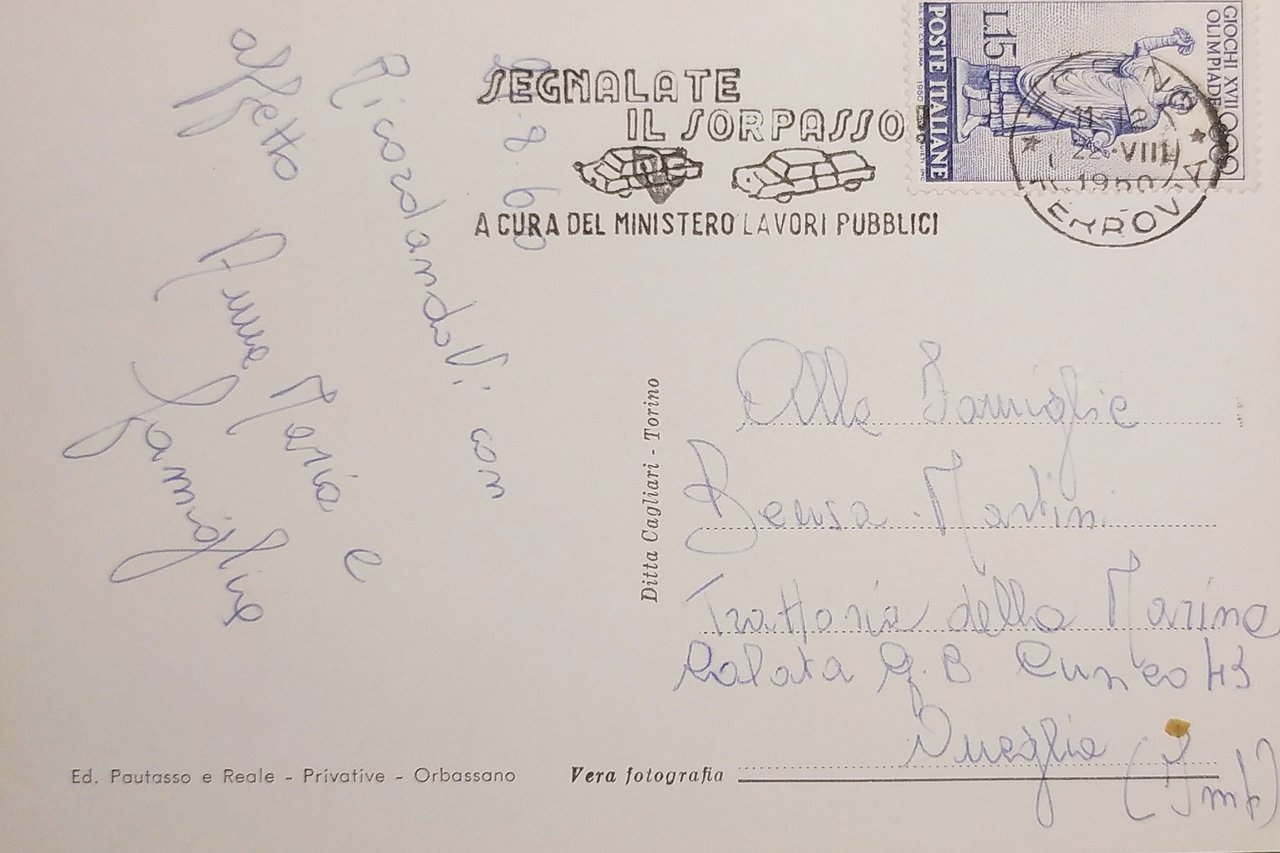 SEGNALATE
IL SORPASSO
A CURA DEL MINISTERO LAVORI PUBBLICI
GIOCHI XVII
OLIMPIADE
L.15
POSTE ITALIANE
1960
TORINO
11-12
22 VIII
1960
FERROVIA
8.60
Ricordandovi con
affetto Anna Maria e
Famiglia
Ditta Cagliari - Torino
Alla Famiglia
Bensa Martini
Trattoria della Marina
Calata G.B Cuneo 43
Oneglia (Imp)
Ed. Pautasso e Reale - Privative - Orbassano
Vera fotografia